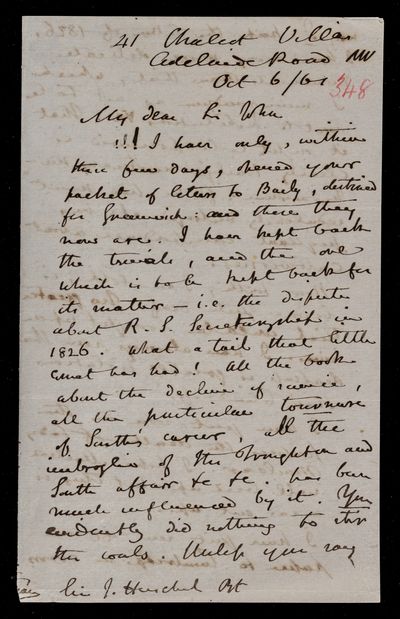 41 Chalcot Villas
Adelaide Road NW
Oct 6/61
348
My dear Sir John
!!! I have only, within
these few days, opened your
packet of letters to Baily, destined
for Greenwich: and there they
now are. I have kept back
the trivials, and the one
which is to be kept back for
its matter – i.e. the dispute
about R. S. Secretaryship in
1826. What a tail that little
comet has had! All the book
about the decline of science,
all the particular tournure
of South's career, all the
imbroglio of the Troughton and
South affair &c &c. has been
much influenced by it. You
evidently did nothing to stir
the coals. Unless you say
Sir J. Herschel Bt